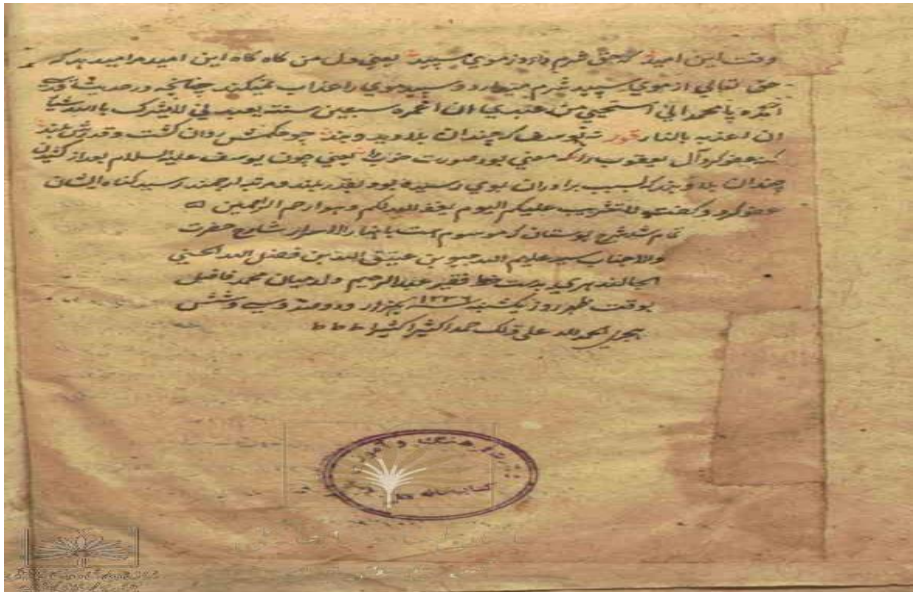 وقت این امید که حق شرم دارد ز موی سپید یعنی دل من کاه کاه این امید مرا میدهد که
حق تعالی از موی سپید شرم میدارد و سپید موی را عذاب نمیکند چنانچه در حدیث
آمده یا محمد انی استحیی من عبدی ان اعمره سبعین سنة یعبدنی لا یشرک بی شیئا
ان اعذبه بالنار قوله نه یوسف که چندان بلا دید و بند چو حکمش روان گشت و قدرش بلند
گنه عفو کرد آل یعقوب را که معنی بود صورت خوب را یعنی چون یوسف علیه السلام بعد از کشیدن
چندان بلا و بند که بسبب برادران بوی رسیده بود و بقدر بلند و مرتبه ارجمند رسید گناه ایشان
عفو کرد و گفت لا تثریب علیکم الیوم یغفر الله لکم و هو ارحم الراحمین
تمام شد شرح بوستان که موسوم است شارح حضرت
والاجناب سید علیم الله بن عتیق الله بن فضل الله الحسینی
الجالندهری بدست خط فقیر عبد الرحیم ولد میان محمد فاضل
بوقت ظهر روز یکشنبه ۱۲۳۶ یکهزار و دوصد و سی و شش
هجری الحمد لله علی ذلک حمدا کثیرا کثیرا